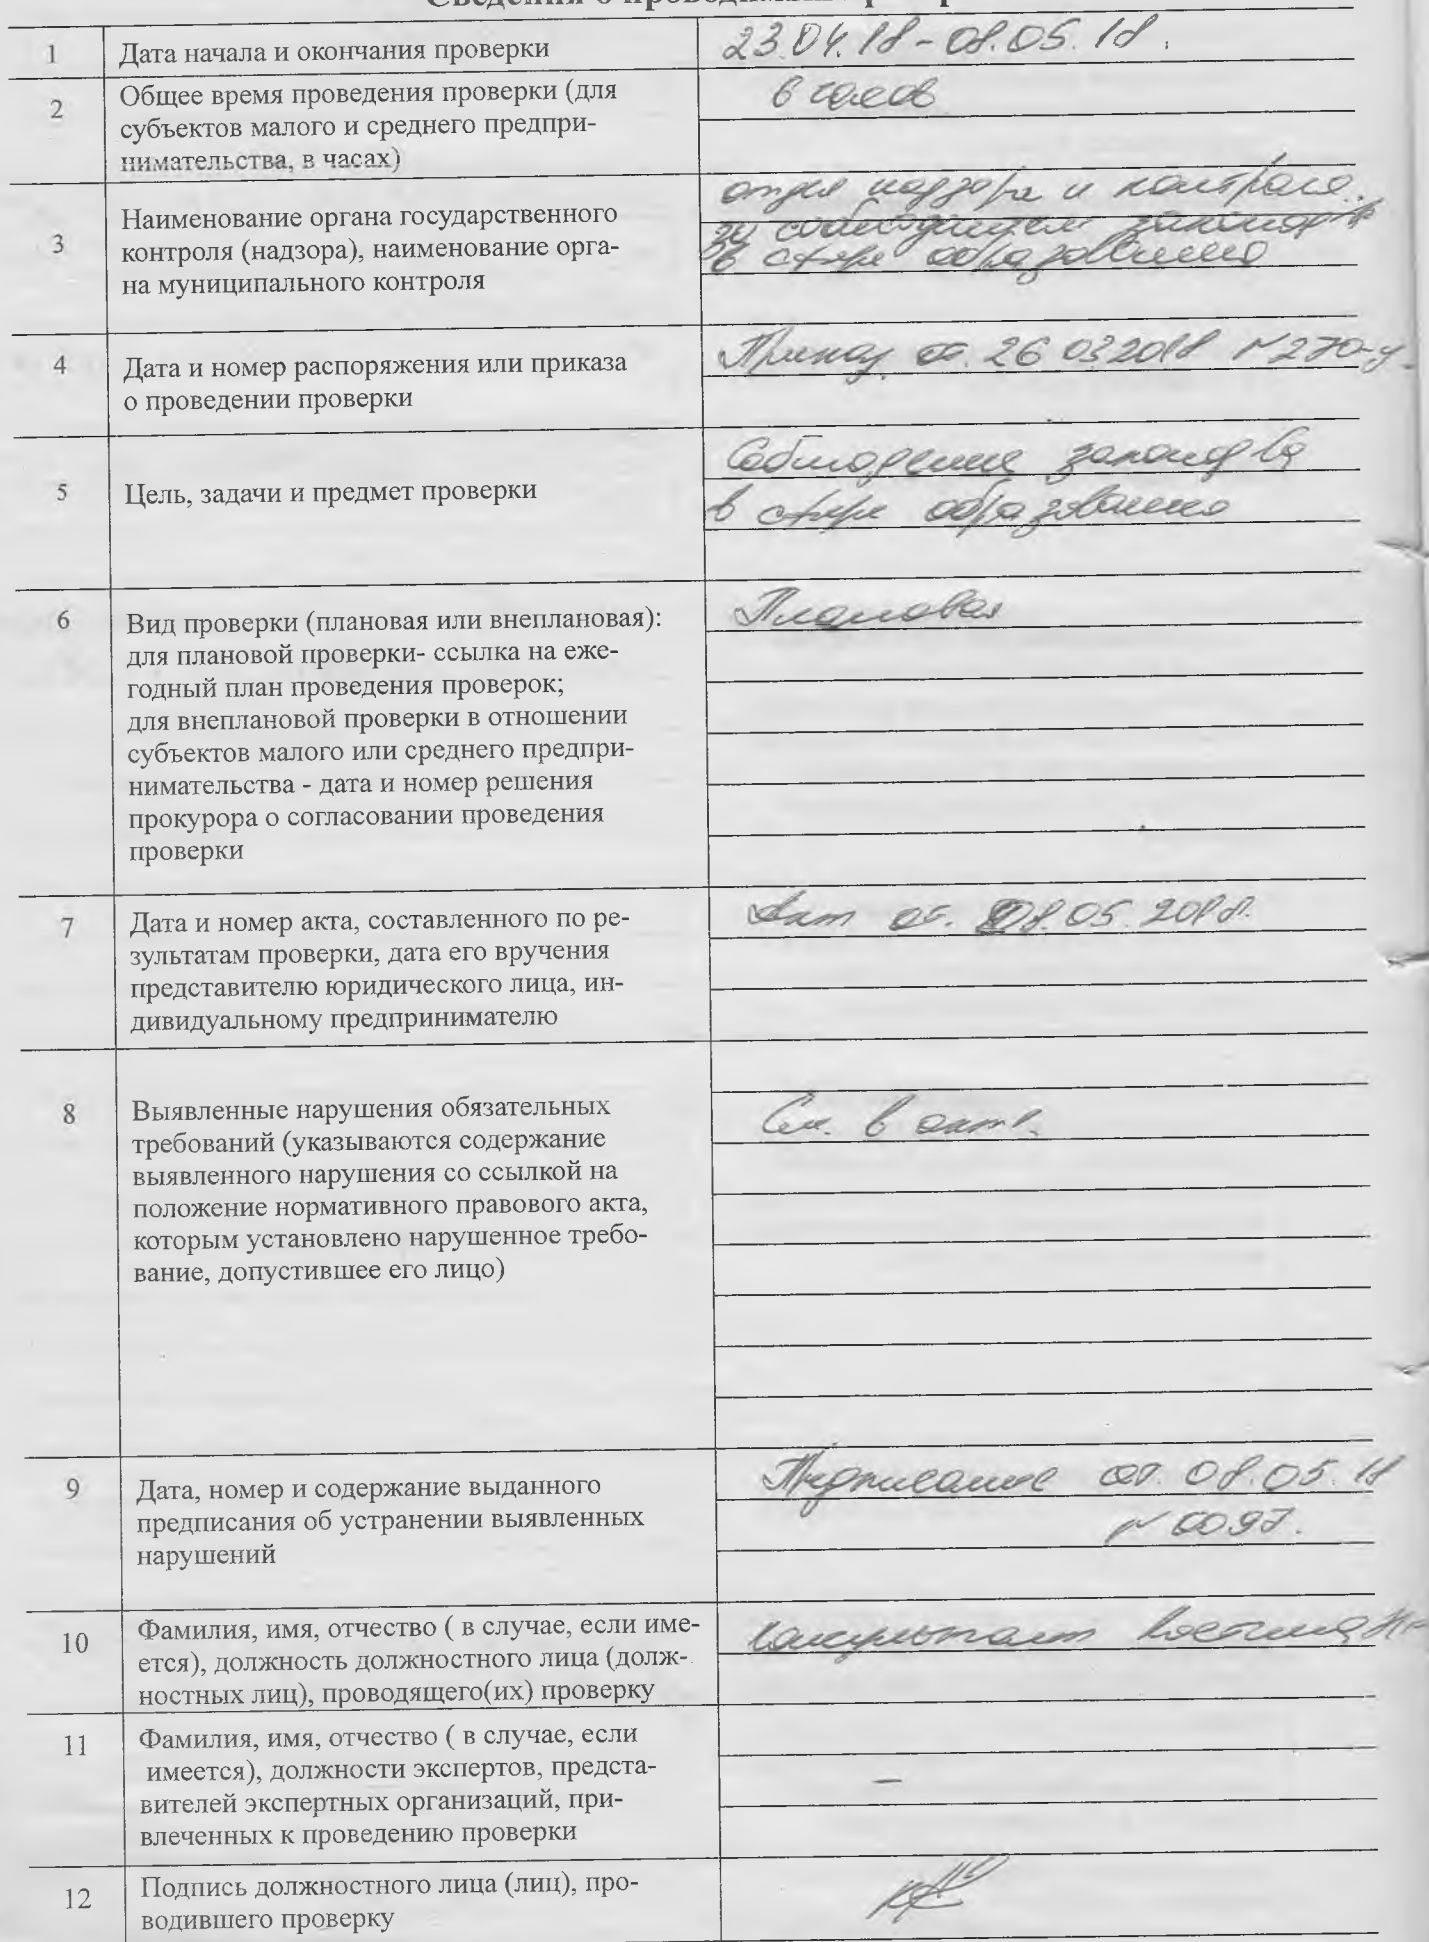 1
Дата начала и окончания проверки
23.04.18 - 08.05.18.
2
Общее время проведения проверки (для
субъектов малого и среднего предпри-
нимательства, в часах)
6 часов
3
Наименование органа государственного
контроля (надзора), наименование орга-
на муниципального контроля
отдел надзора и контроля
за соблюдением законод
в сфере образования
4
Дата и номер распоряжения или приказа
о проведении проверки
Приказ от. 26 03 2018 №270-у
5
Цель, задачи и предмет проверки
Соблюдение законод ва
в сфере образования
6
Вид проверки (плановая или внеплановая):
для плановой проверки- ссылка на еже-
годный план проведения проверок;
для внеплановой проверки в отношении
субъектов малого или среднего предпри-
нимательства - дата и номер решения
прокурора о согласовании проведения
проверки
Плановая
7
Дата и номер акта, составленного по ре-
зультатам проверки, дата его вручения
представителю юридического лица, ин-
дивидуальному предпринимателю
Акт от. 08.05.2018.
8
Выявленные нарушения обязательных
требований (указываются содержание
выявленного нарушения со ссылкой на
положение нормативного правового акта,
которым установлено нарушенное требо-
вание, допустившее его лицо)
См. в акте.
9
Дата, номер и содержание выданного
предписания об устранении выявленных
нарушений
Предписание от 08.05.18
№ 0097.
10
Фамилия, имя, отчество ( в случае, если име-
ется), должность должностного лица (долж-
ностных лиц), проводящего(их) проверку
консультант
11
Фамилия, имя, отчество ( в случае, если
имеется), должности экспертов, предста-
вителей экспертных организаций, при-
влеченных к проведению проверки
–
12
Подпись должностного лица (лиц), про-
водившего проверку